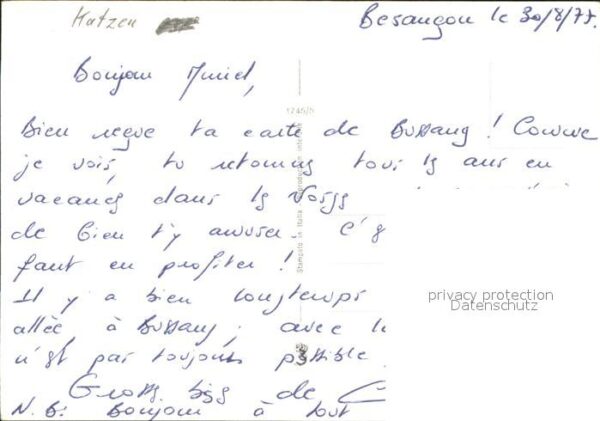 Katzen
Besançon le 30/8/77.
Bonjour Muriel,
Bien reçue ta carte de Bussang ! Comme
je vois, tu retournes tous les ans en
vacances dans les Vosges
de bien t'y amuser. C'es
faut en profiter !
Il y a bien longtemps
allée à Bussang ; avec l
n'est pas toujours possible
Gross bis de C
N.B. Bonjour à tout
Stampato in Italia Reproduction interdite
privacy protection
Datenschutz
3